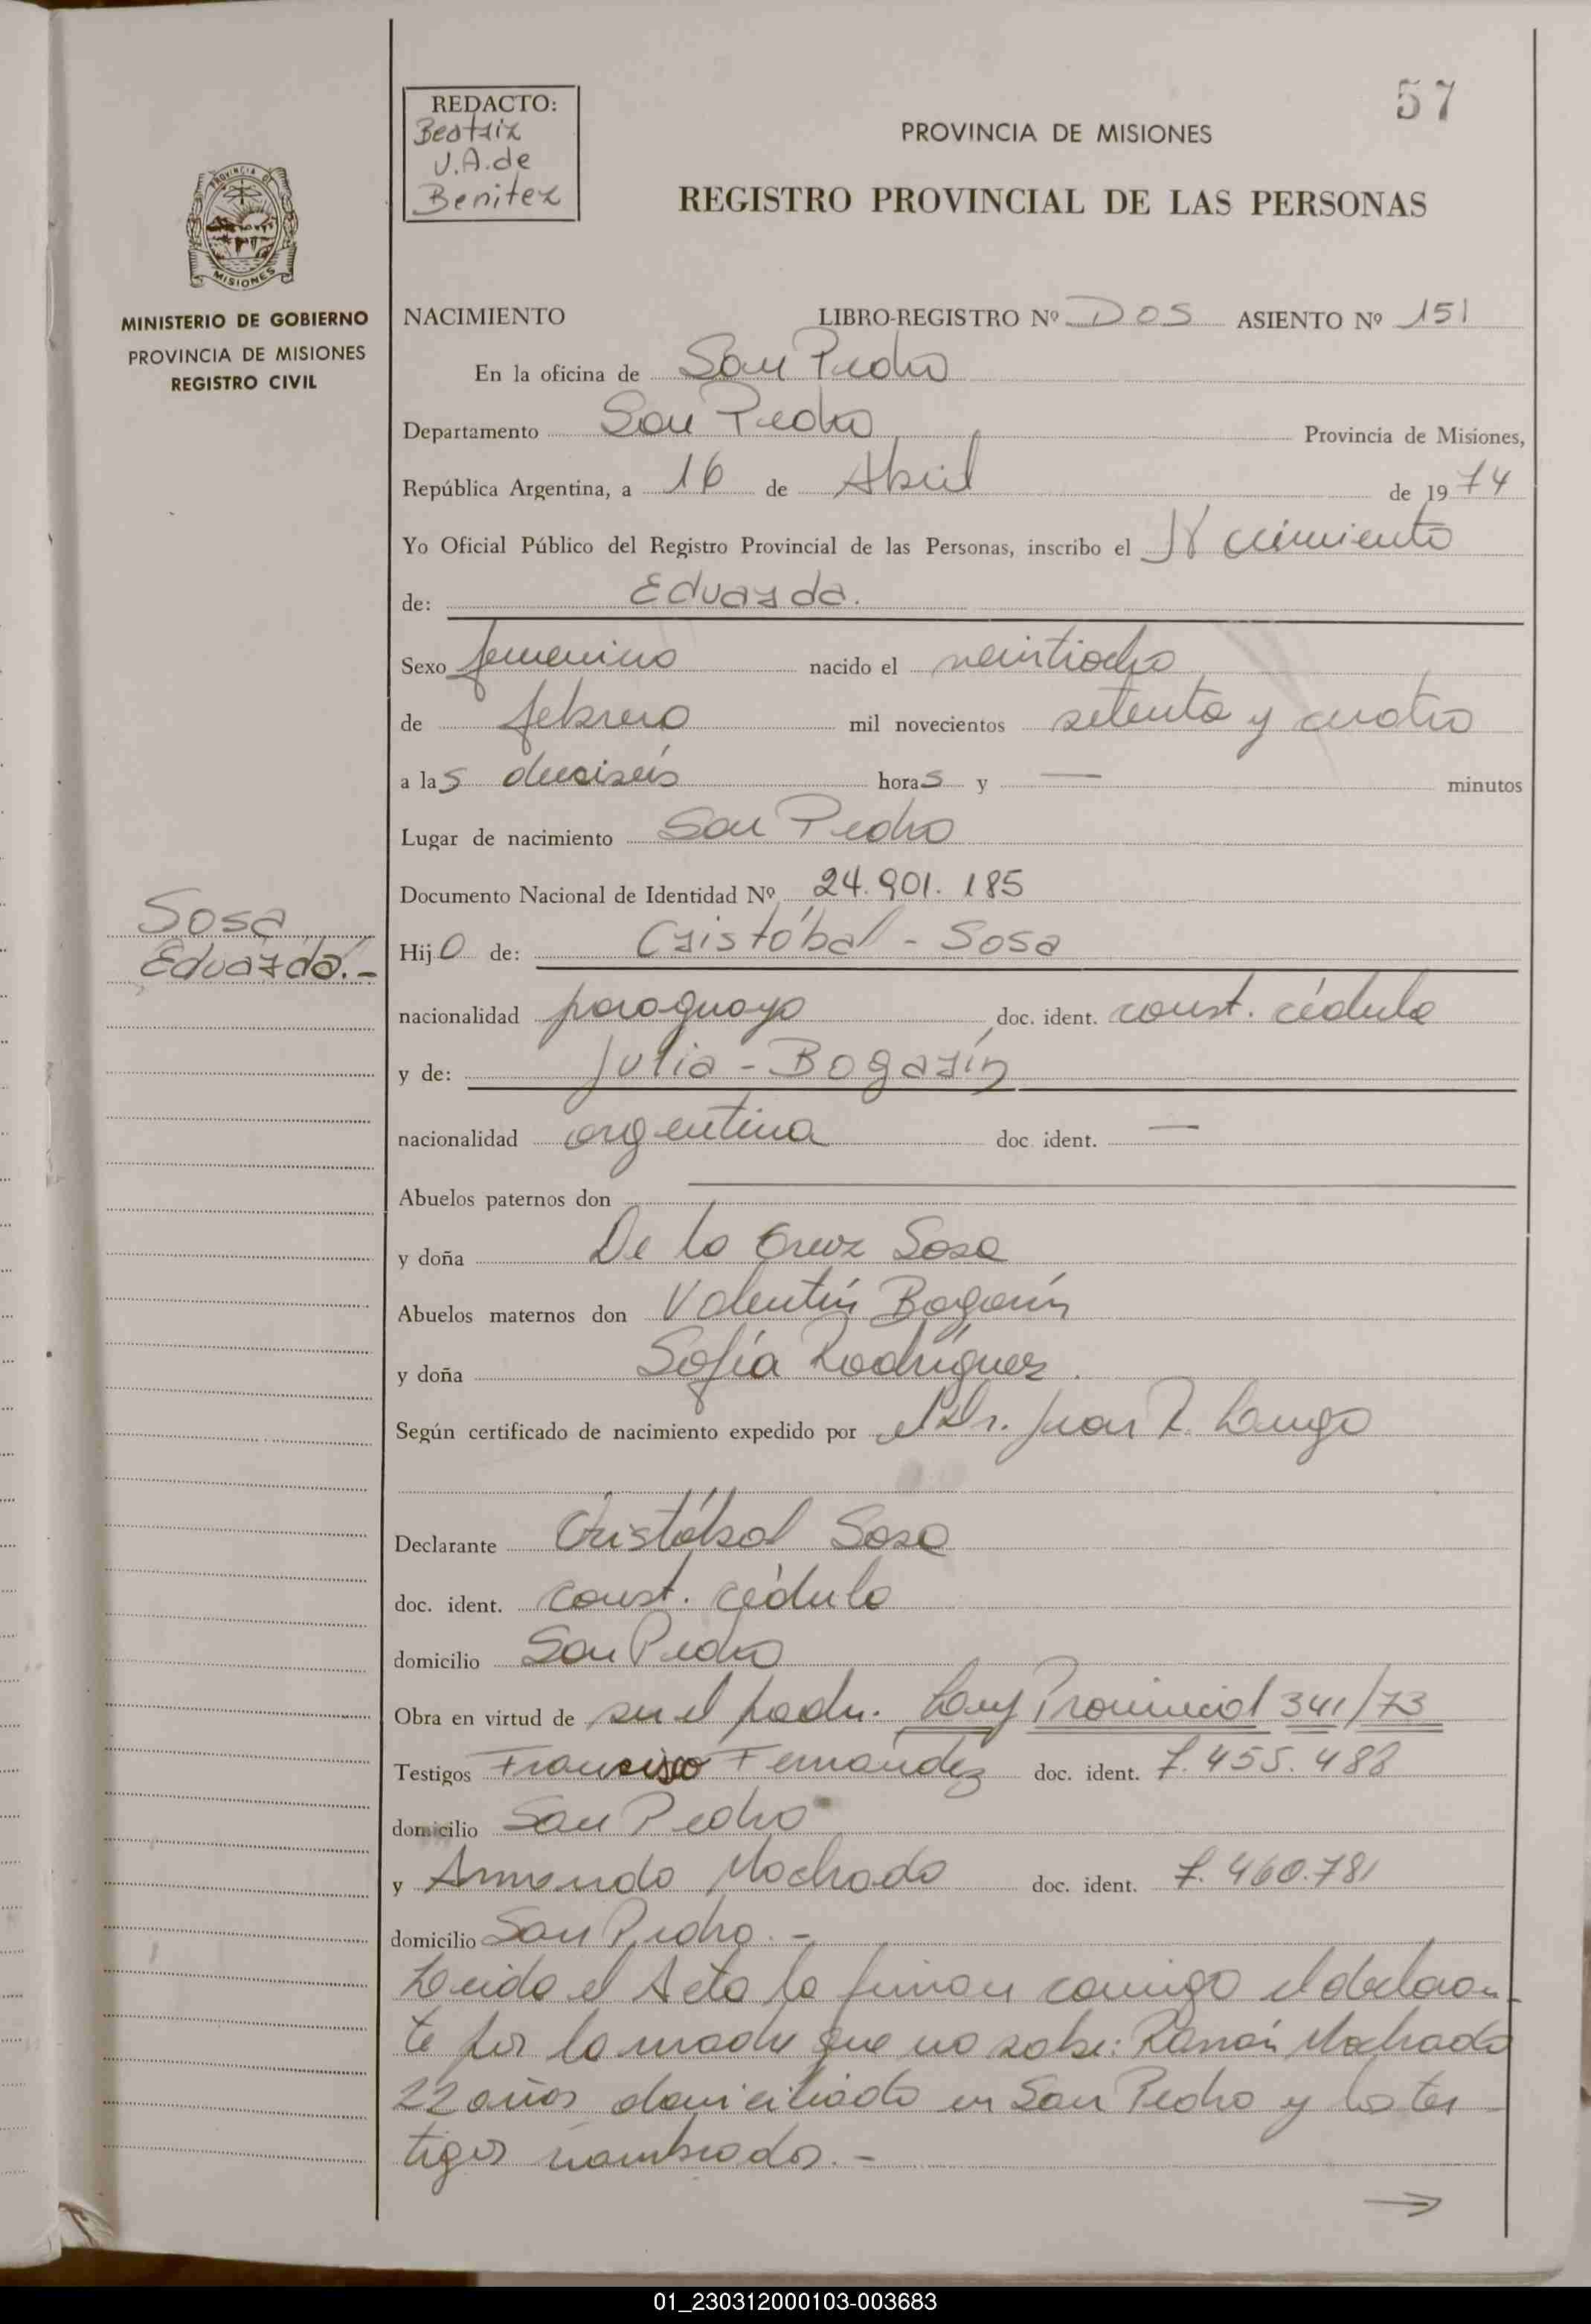 57
REDACTO:
Beatriz
V.A.de
Benitez
PROVINCIA DE MISIONES
REGISTRO PROVINCIAL DE LAS PERSONAS
PROVINCIA DE
MISIONES
MINISTERIO DE GOBIERNO
PROVINCIA DE MISIONES
REGISTRO CIVIL
NACIMIENTO LIBRO-REGISTRO Nº DOS ASIENTO Nº 151
En la oficina de San Pedro
Departamento San Pedro Provincia de Misiones,
República Argentina, a 16 de Abril de 1974
Yo Oficial Público del Registro Provincial de las Personas, inscribo el Nacimiento
de: Eduarda.
Sexo femenino nacido el veintiocho
de febrero mil novecientos setenta y cuatro
a las dieciseis horas y — minutos
Lugar de nacimiento San Pedro
Documento Nacional de Identidad Nº 24.901.185
Sosa
Eduarda.-
Hijo de: Cristóbal - Sosa
nacionalidad paraguayo doc. ident. const. cédula
y de: Julia - Bogarín
nacionalidad argentina doc. ident. —
Abuelos paternos don ———
y doña De la Cruz Sosa
Abuelos maternos don Valentín Bogarín
y doña Sofía Rodríguez.
Según certificado de nacimiento expedido por el Dr. Juan Z. Lugo
Declarante Cristóbal Sosa
doc. ident. const. cédula
domicilio San Pedro
Obra en virtud de ser el padre. Ley Provincial 341/73
Testigos Francisco Fernández doc. ident. 7.455.488
domicilio San Pedro
y Armando Machado doc. ident. 7.460.781
domicilio San Pedro.-
Leida el Acta la firman conmigo el declaran-
te por la madre que no sabe: Ramón Machado
22 años domiciliado en San Pedro y los tes-
tigos nombrados.-
01_230312000103-003683